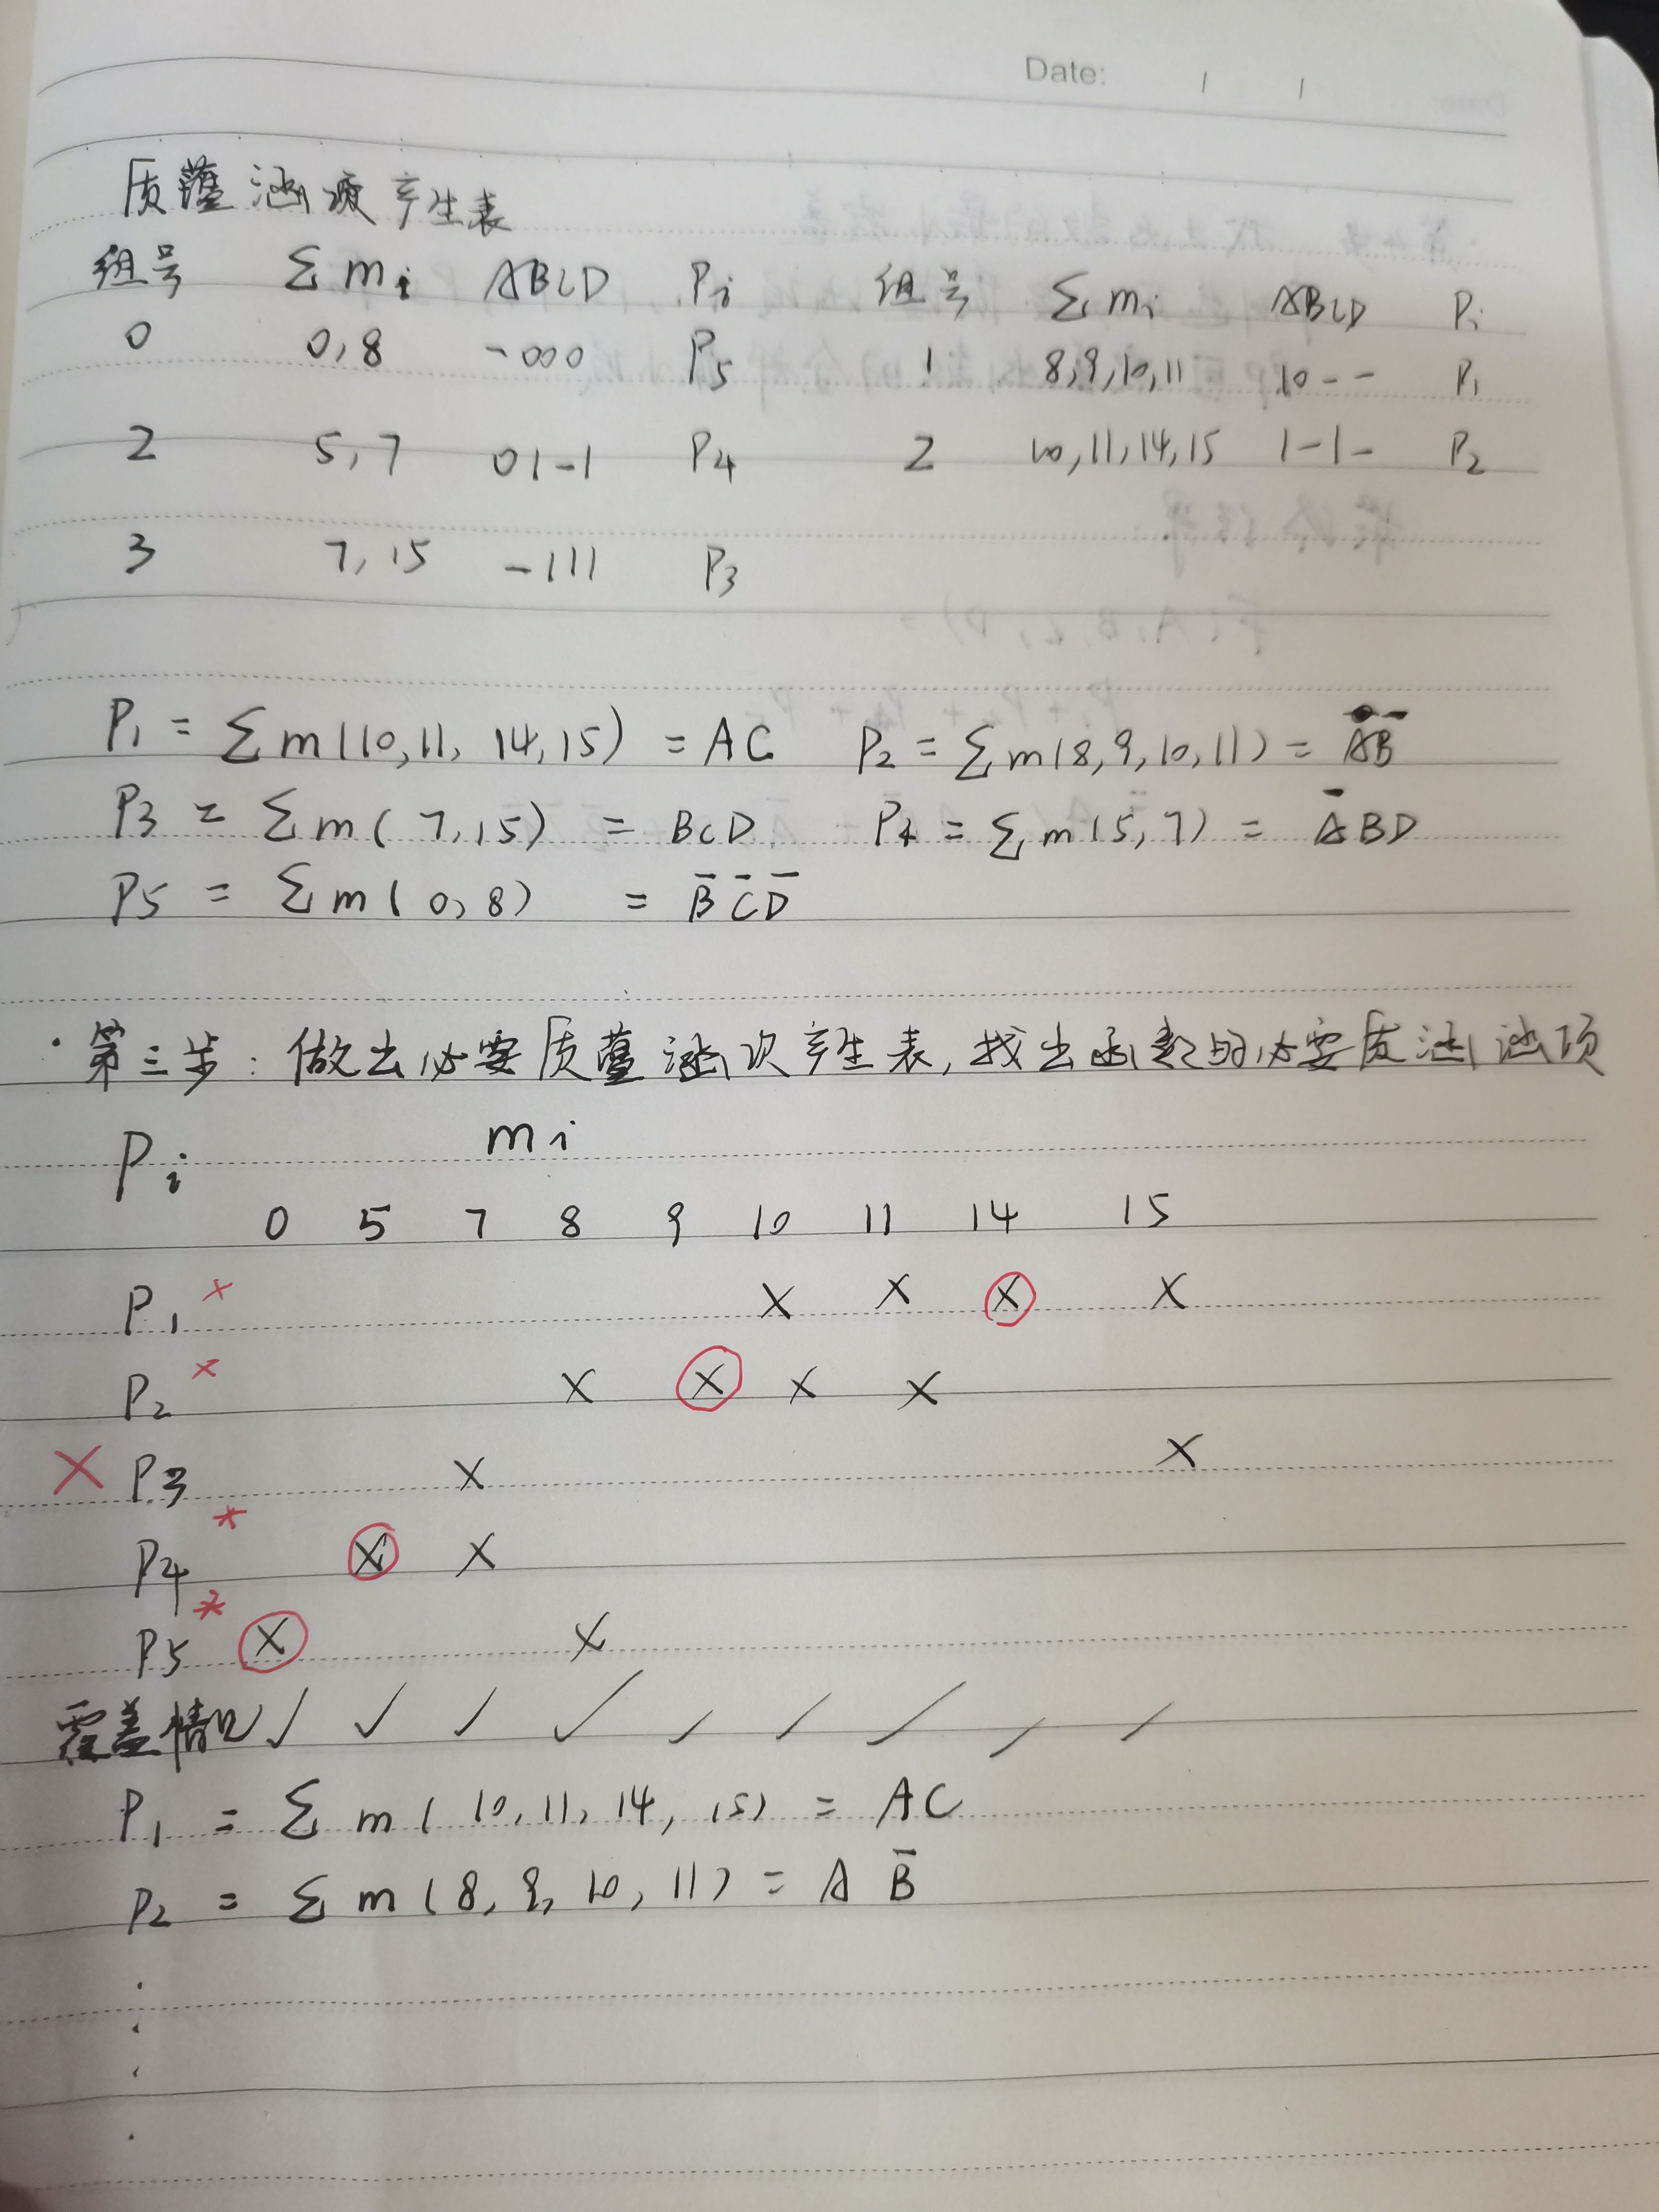 Date: / /
质蕴涵项产生表
组号 Σmi ABCD Pi 组号 Σmi ABCD Pi
0 0,8 -000 P5 1 8,9,10,11 10-- P1
2 5,7 01-1 P4 2 10,11,14,15 1-1- P2
3 7,15 -111 P3
P1 = Σm(10,11,14,15) = AC P2 = Σm(8,9,10,11) = AB̄
P3 = Σm(7,15) = BCD P4 = Σm(5,7) = ĀBD
P5 = Σm(0,8) = B̄C̄D̄
·第三步:做出必要质蕴涵项产生表,找出函数的必要质涵涵项
Pi mi
0 5 7 8 9 10 11 14 15
P1 × × × × ×
P2 × × × × ×
× P3 × ×
P4 * × ×
P5 * × ×
覆盖情况 ✓ ✓ ✓ ✓ ✓ ✓ ✓ ✓ ✓
P1 = Σm(10,11,14,15) = AC
P2 = Σm(8,9,10,11) = AB̄